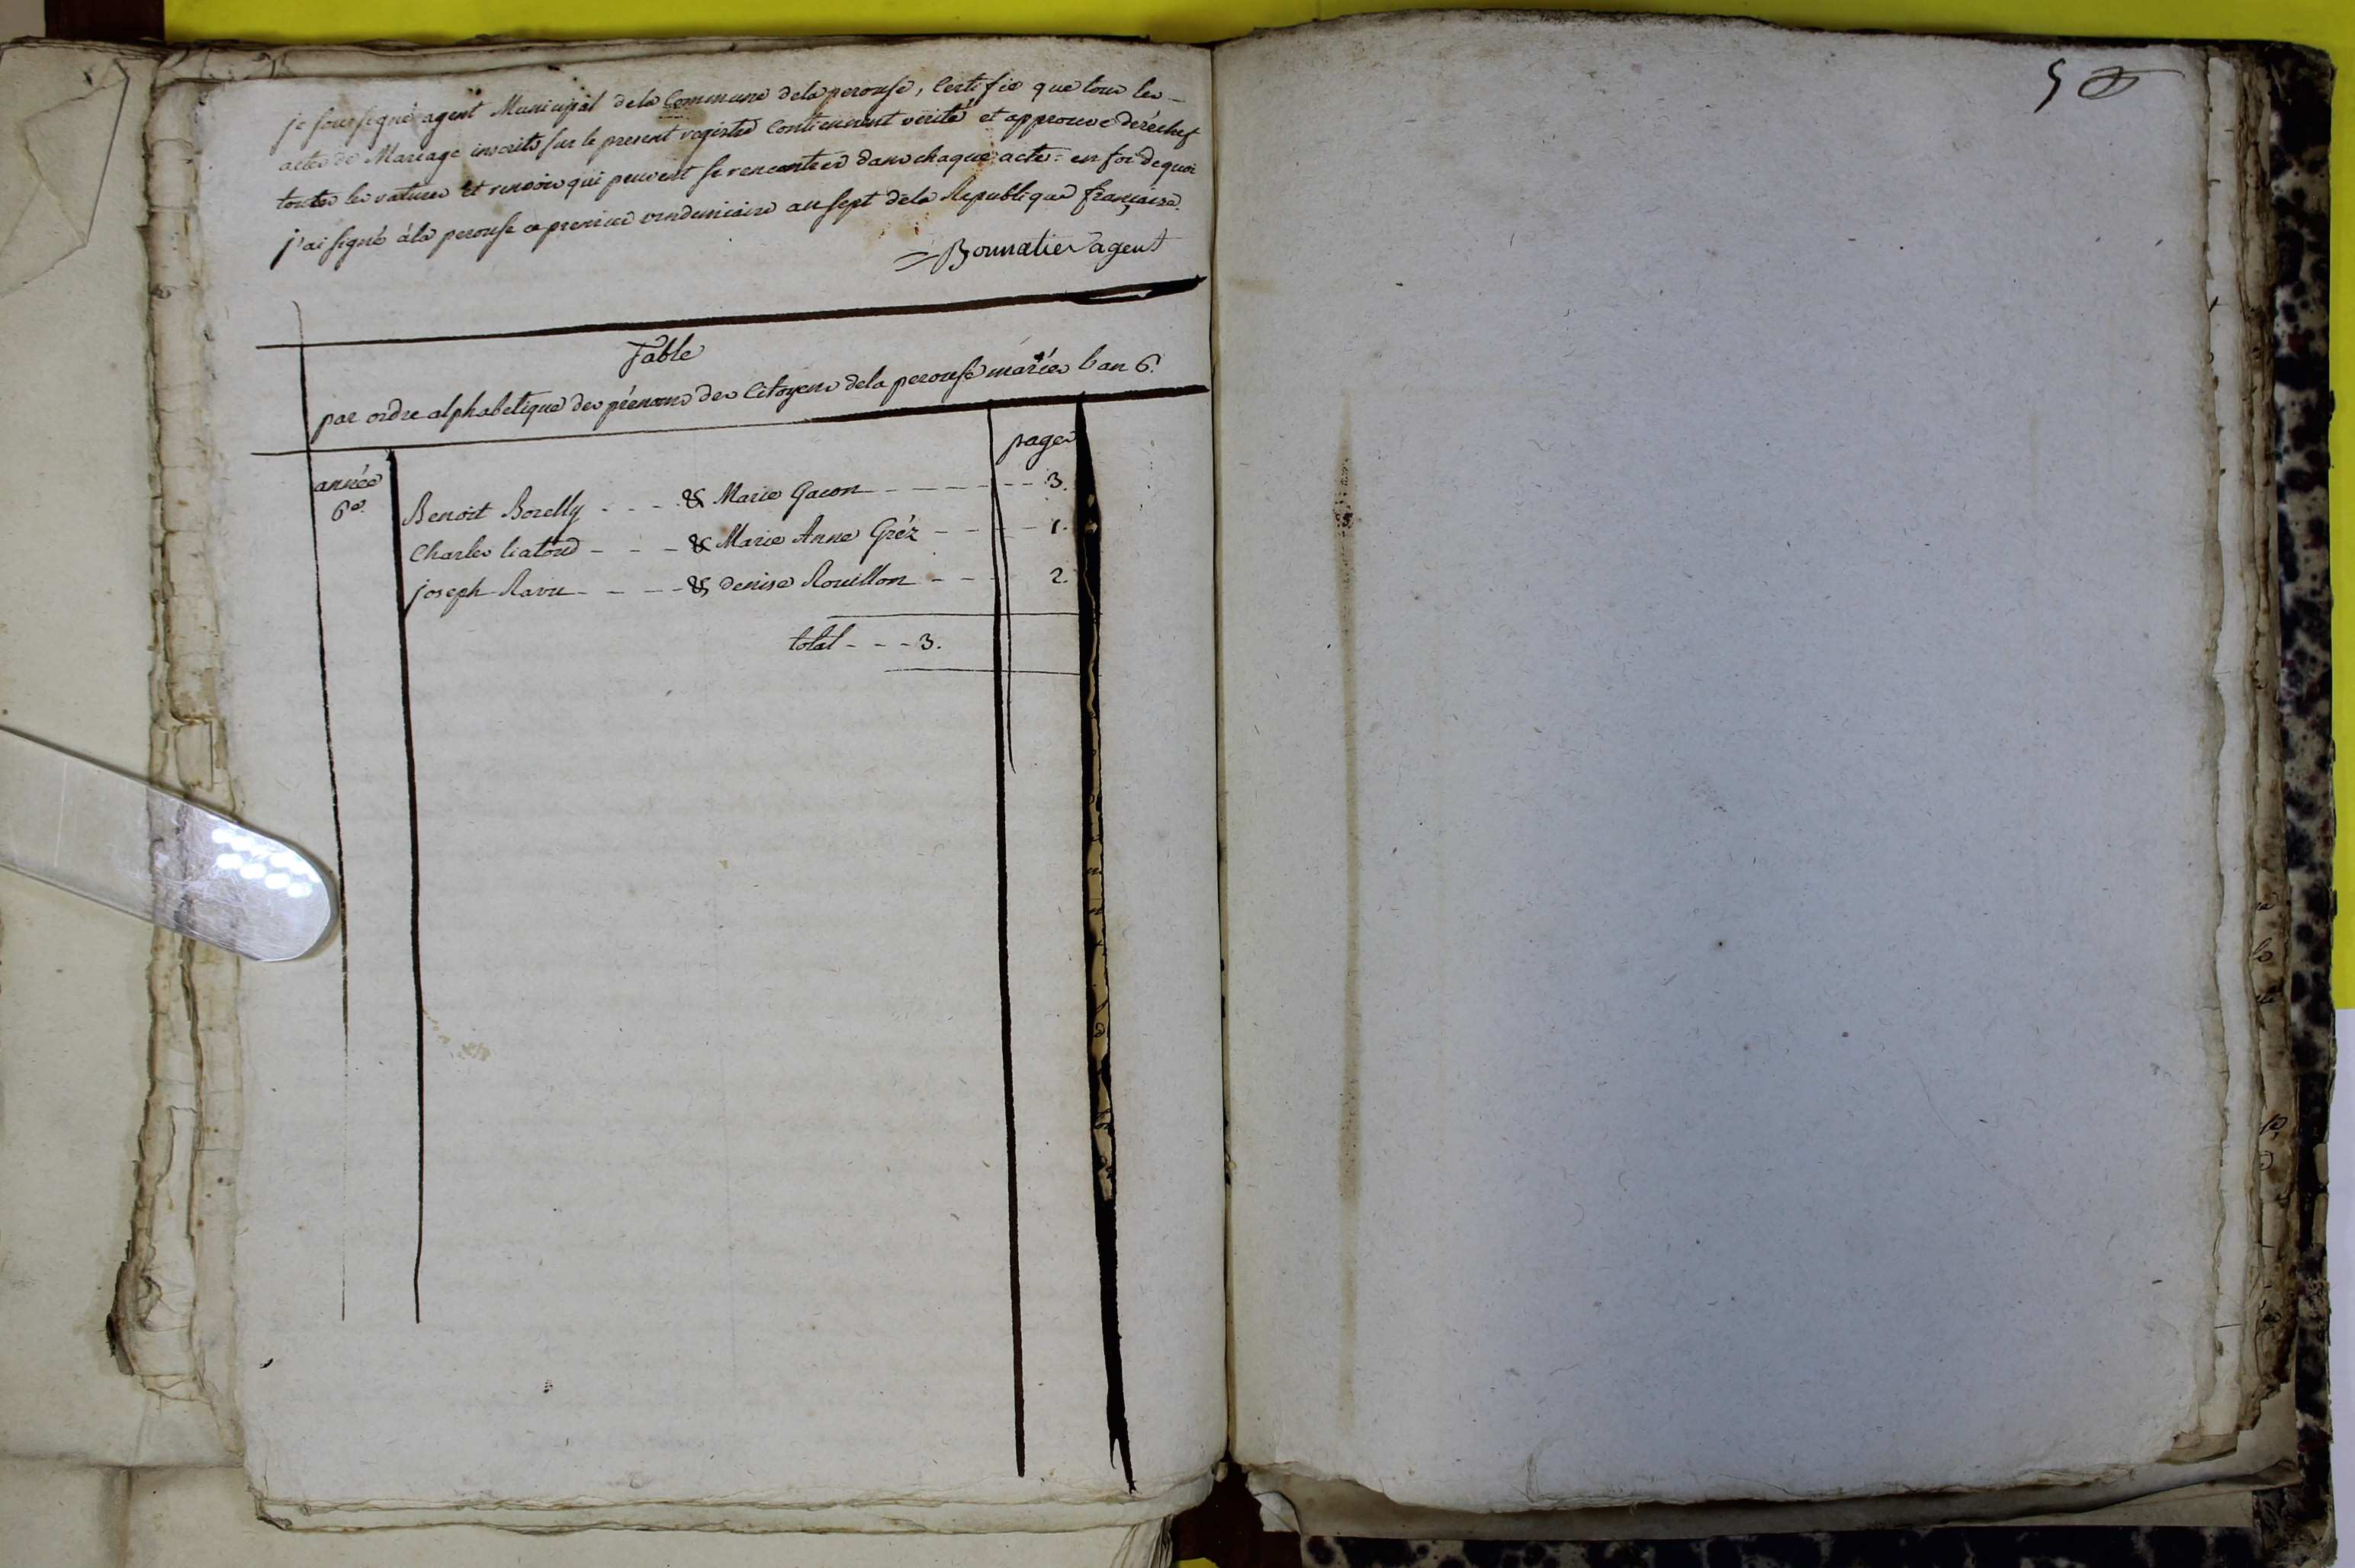 je soussigné agent Municipal dela Commune dela perouse, Certifie que tous les
actes de Mariage inscrits sur le present registre Contiennent verité et approuve derechef
toutes les ratures et renvois qui peuvent se rencontrer dans chaque acte: en foi dequoi
j'ai signé àla perouse ce premier vendemiaire an sept dela Republique française.
Bonnatier agent
Table
par ordre alphabetique des prénoms des Citoyens dela perouse mariés l'an 6.
pages
année
6e.
Benoit Borelly - - - & Marie Gacon - - - 3.
Charles liatord - - - & Marie Anne Gréz - - - 1.
joseph Ravu - - - & denise Rouillon - - 2.
total - - - 3.
5